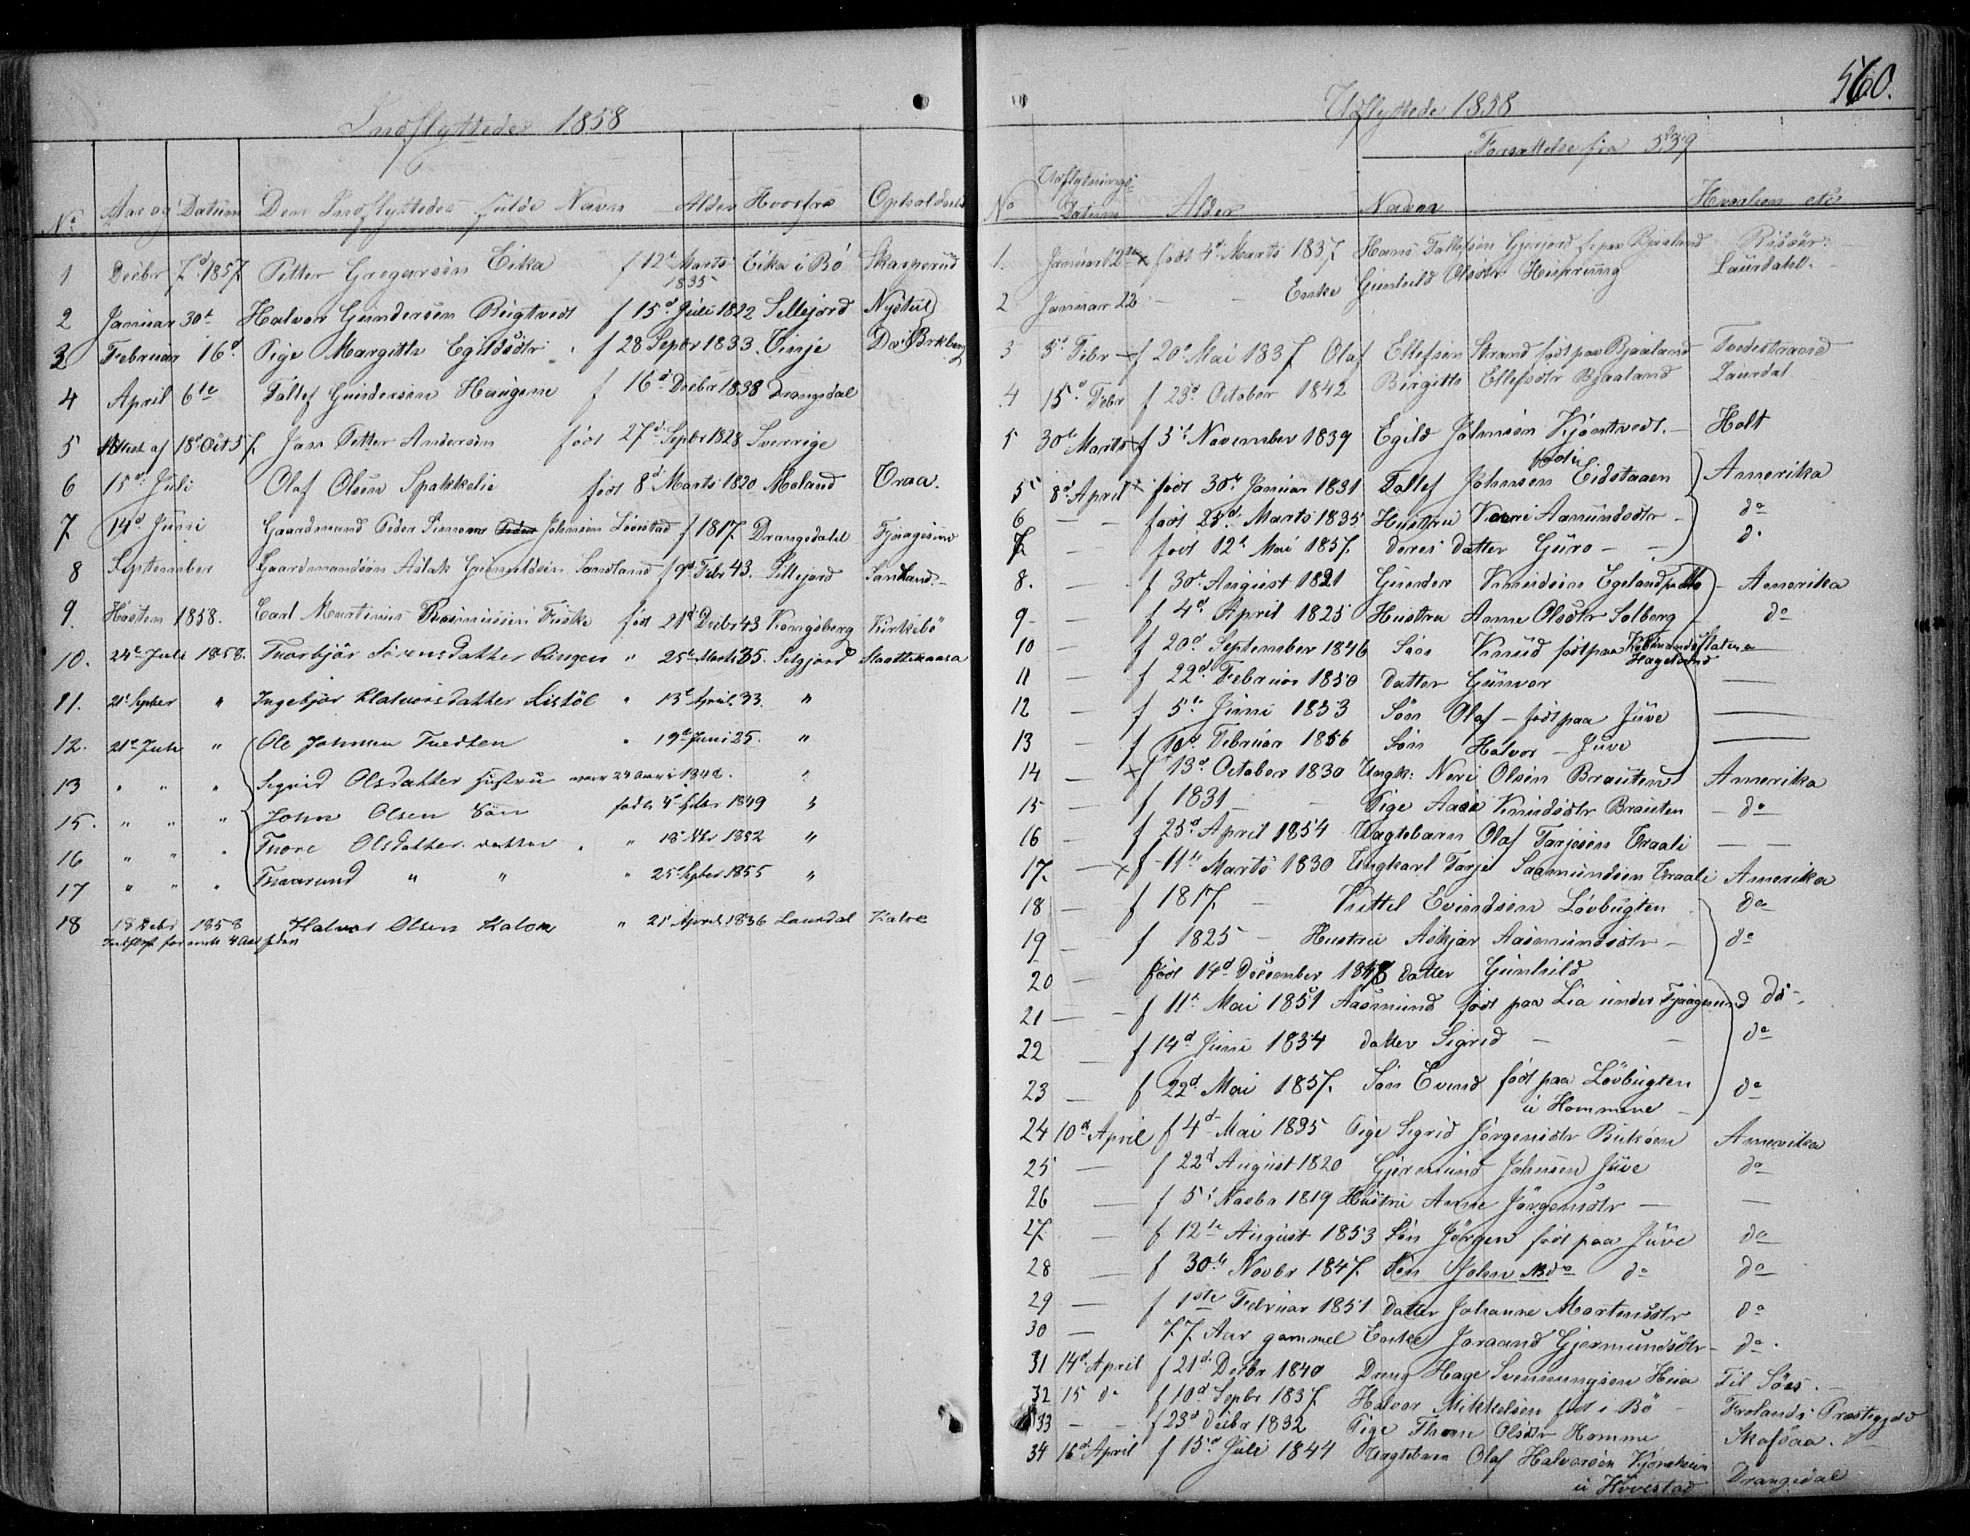 Indflyttede 1858
No Aar og Datum Den Indflyttedes fulde Navn Alder Hvorfra Opholdssted
1 Decbr 7d 1857 Petter Gregersen Eika f 12t Marts 1835 Eika i Bö Skasperud
2 Januar 30t Halvor Gundersen Rugtvedt f 15d Juli 1822 Sillejord Nystul
3 Februar 16d Pige Margitte Egildsdtr f 28 Sepbr 1833 Vinje Do
4 April 6te Tallef Gundersen Haugene f 16d Decbr 1838 Drangedal
5 18d Oct 57 Jan Petter Andersen född 27d Sepbr 1828 Sverrige
6 15d Juli Olaf Olsen Spakkelie född 8d Marts 1820 Moland Traa.
7 14d Juni Gaardmand Peder Johnsen Lönstad f 1817 Drangedahl Fjaagesund
8 September Gaardmandsön Aslak Gunuldsen Sandland f 9d Febr 43. Sillejord Sandland
9. Hösten 1858. Carl Martinius Rasmussen Friske född 21d Decbr 43 Kongsberg Kirkebö
10. 24de Juli 1858. Thorbjör Sörensdatter Ringen " 25t Marts 35. Selgjord
11. 21t Septber " Ingebjör Halvorsdatter Listöl " 13t April 33. "
12. 21de Juli " Ole Johnsen Tvedten " 19de Juni 25. "
13 " " " Sigrid Olsdatter Hustru 24 Aar i 1848. "
15. " " " John Olsen Sön föd 5t Febr 1849 "
16 " " " Thore Olsdatter datter " 18t 1852 "
17 " " " Thaarund " " " 25t Septber 1855 "
18 18 Debr 1858 Halvor Olsen Kalvoe " 21t April 1836 Laurdal Kalvoe
560.
Udflyttede 1858
Forsættelse fra 539
No Udflytnings Datum Alder Navn Hvorhen etc
1. Januar 12te född 4d Marts 1837 Hans Tallefsen Gjerjord f paa Bjaaland Risöer
2 Januar 22 — Enke Gunhild Olsdtr Heispreng Laurdahl.
3 5t Febr f 20d Mai 1837 Olaf Ellefsen Strand född paa Bjaaland Tvedestrand
4 15d Febr f 23d October 1842 Birgitte Ellefsdtr Bjaaland Laurdal
5 30te Marts f 5t November 1839 Egild Johnsen Kjöntvedt. Holt
5 8d April född 30te Januar 1831 Tallef Johnsen Eidstaaen Amerika
6 — — född 25d Marts 1835 Hustru Kari Aamundsdtr do
7 — född 12t Mai 1857. deres datter Guro — do
8. — f 30te August 1821 Gunder Knudsen Egelandsmoe Amerika
9 — f 4d April 1825 Hustru Anne Olsdtr Solberg do
10 — f 20d September 1846 Sön Knud född paa Hagelund
11 — f 22d Februar 1850 datter Gunvor —
12 — f 5te Juni 1853 Sön Olaf — född paa Juve —
13 — f 10d Februar 1856 Sön Halvor — Juve —
14 — f 13d October 1830 Ungk: Neri Olsen Brauten Amerika
15 — f 1831 — Pige Aase Knudsdtr Brauten do
16 — f 25d April 1854 Uægtebarn Olaf Tarjesen Traali —
17. — f 11te Marts 1830 Ungkarl Tarje Saamundsen Traali Amerika
18 — f 1817. Kittel Evindsen Lövbugten do
19 — f 1825 — Hustru Askjær Aasmundsdtr do
20 — född 14d December 1848 datter Gunhild
21 — f 11te Mai 1851 Aasmund född paa Lia under Fjaagesund do
22 — f 14d Juni 1854 datter Sigrid — do
23 — f 22d Mai 1857. Sön Evind född paa Lövbugten u Hommene do
24 10d April f 4d Mai 1835 Pige Sigrid Jörgensdtr Buköen Amerika
25 — f 22d August 1820 Gjermund Johnsen Juve do
26 — f 5t Novbr 1819 Hustru Anne Jörgensdtr —
27. — f 12te August 1853 Sön Jörgen född paa Juve do
28 — f 30te Novbr 1847. Sön John do do
29 — f 1ste Februar 1851 datter Johanne Mortensdtr do
30 — 77 Aar gammel Enke Joraand Gjermundsdtr do
31 14d April f 21d Decbr 1840 Dreng Hage Svennungsen Heia Til Söes.
32 15 do f 10d Sepbr 1837. Halvor Mikkelsen född i Bö Frolands Præstegjeld
33 — f 23d Decbr 1832 Pige Thone Olsdtr Homme Skafsaa.
34 16d April f 15d Juli 1844 Uægtebarn Olaf Halvorsen Kjönsheien
u Hövestad Drangedal